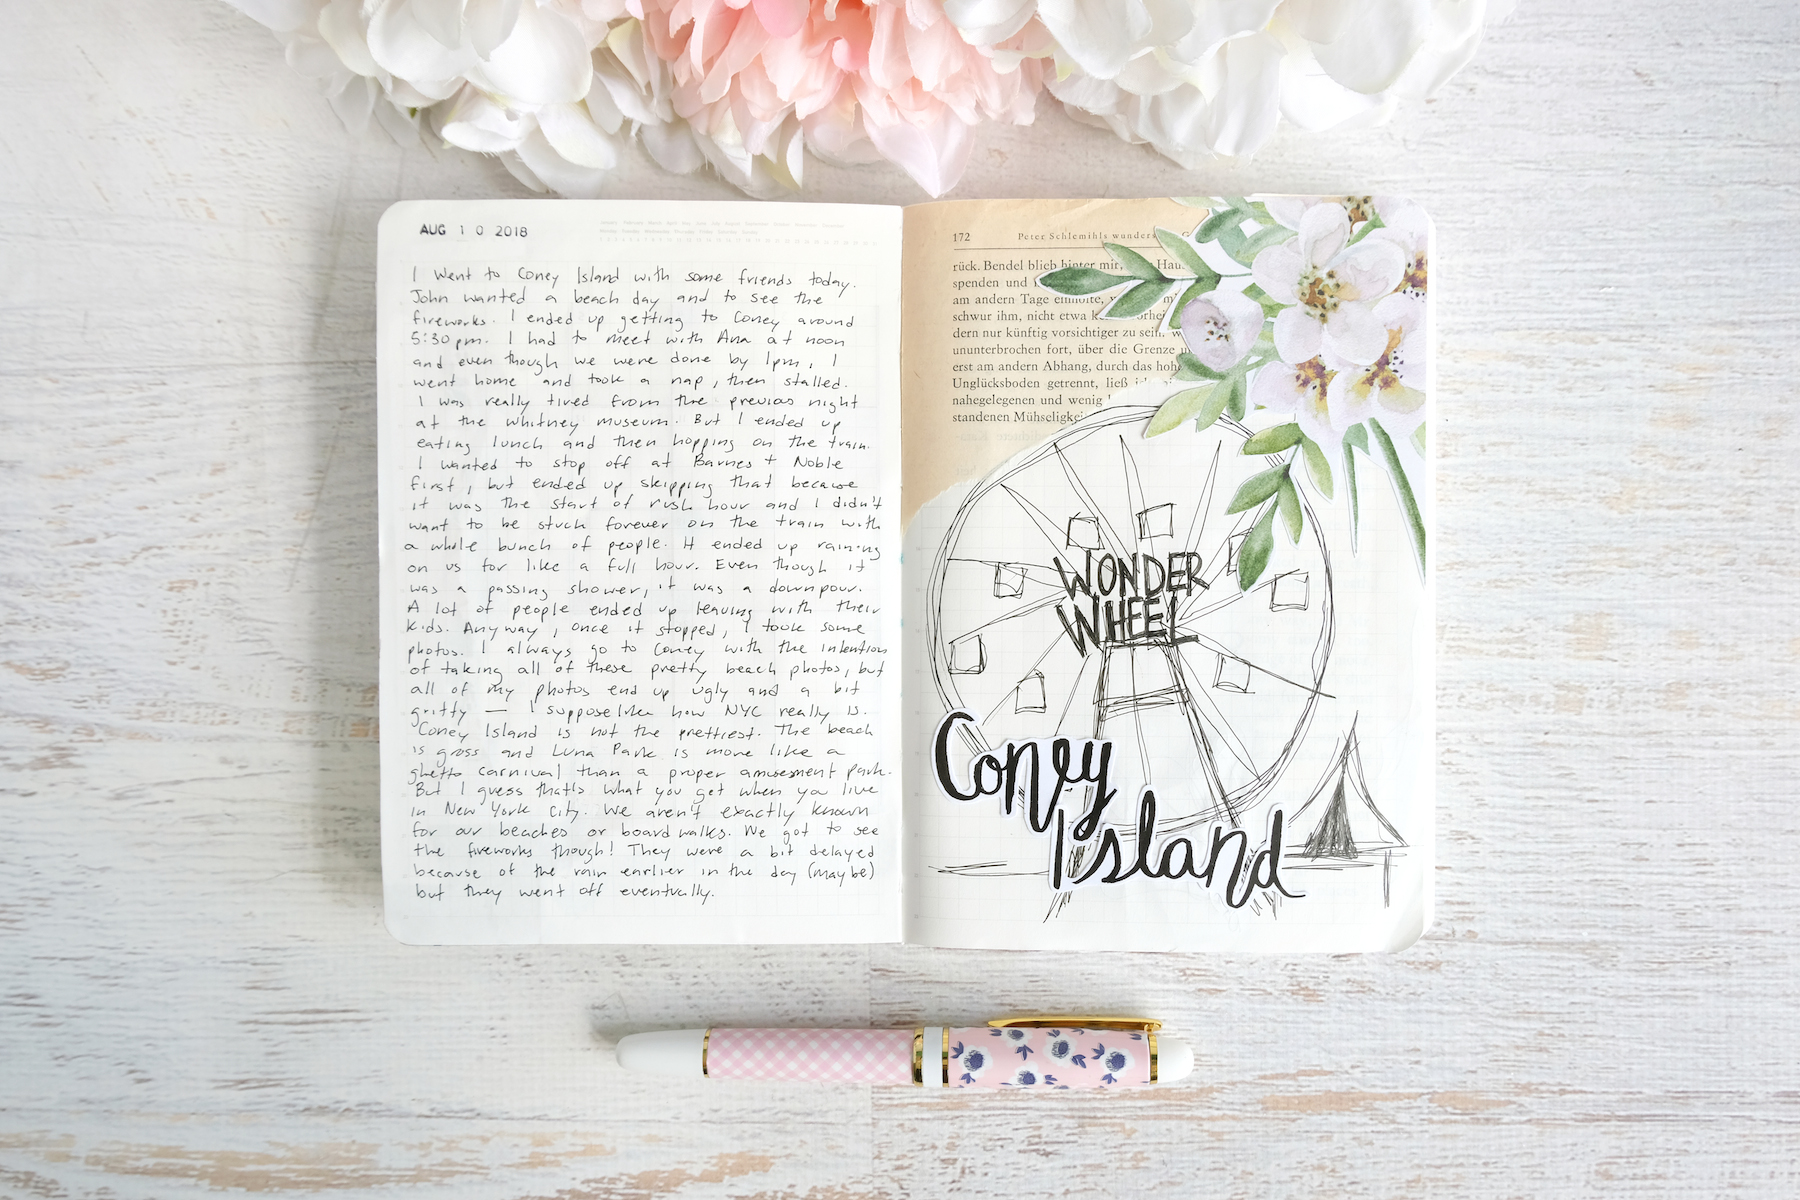 AUG 10 2018
I went to Coney Island with some friends today.
John wanted a beach day and to see the
fireworks. I ended up getting to Coney around
5:30pm. I had to meet with Ana at noon
and even though we were done by 1pm, I
went home and took a nap, then stalled.
I was really tired from the previous night
at the whitney museum. But I ended up
eating lunch and then hopping on the train.
I wanted to stop off at Barnes + Noble
first, but ended up skipping that because
it was the start of rush hour and I didn't
want to be stuck forever on the train with
a whole bunch of people. It ended up raining
on us for like a full hour. Even though it
was a passing shower, it was a downpour.
A lot of people ended up leaving with their
kids. Anyway, once it stopped, I took some
photos. I always go to Coney with the intention
of taking all of these pretty beach photos, but
all of my photos end up ugly and a bit
gritty — I suppose like how NYC really is.
Coney Island is not the prettiest. The beach
is gross and Luna Park is more like a
ghetto carnival than a proper amusement park.
But I guess that's what you get when you live
in New York City. We aren't exactly known
for our beaches or boardwalks. We got to see
the fireworks though! They were a bit delayed
because of the rain earlier in the day (maybe)
but they went off eventually.
172 Peter Schlemihls
rück. Bendel blieb hinter mir,
spenden und
am andern Tage einholte,
schwur ihm, nicht etwa
dern nur künftig vorsichtiger zu sein.
ununterbrochen fort, über die Grenze
erst am andern Abhang, durch das
Unglücksboden getrennt, ließ
nahegelegenen und wenig
standenen
WONDER
WHEEL
Coney
Island